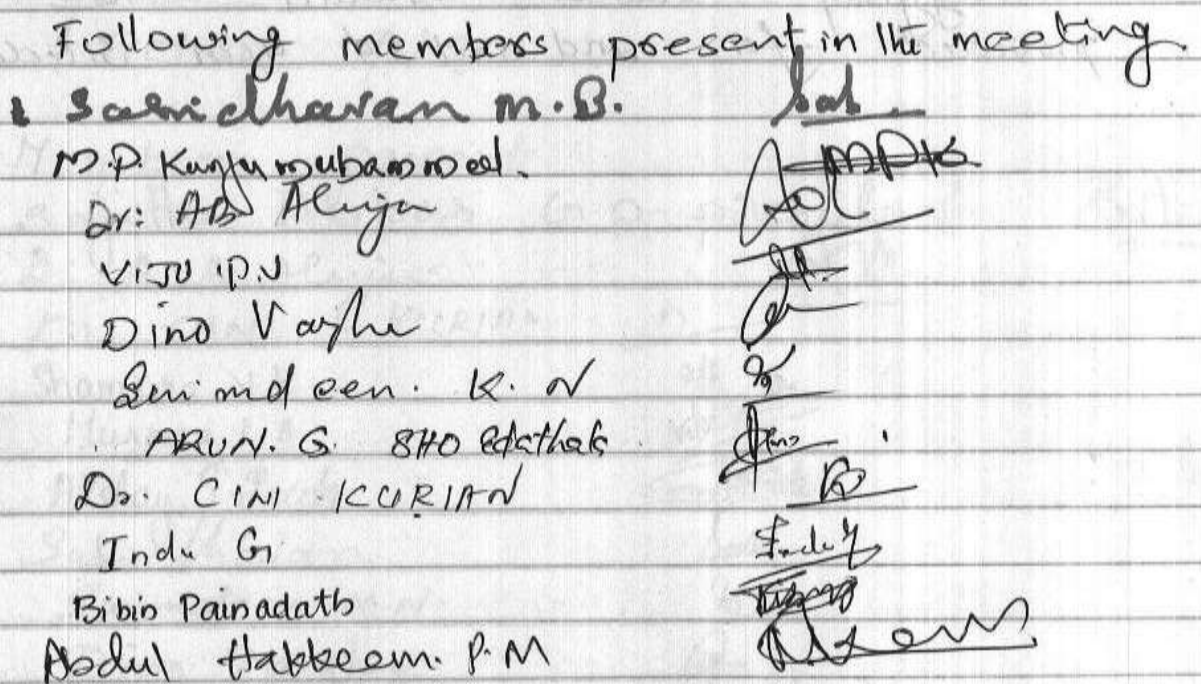 Following members present in the meeting.
Sasidharan M.B.
M.P. Kunjumuhammed. MPK
Dr: AB Aliyar
VIJU P.N
Dino Varghe
K. N
ARUN. G. SHO Edathala
Dr. CINI KURIAN
Indu G Indu G
Bibin Painadath
Abdul Hakkeem. P.M